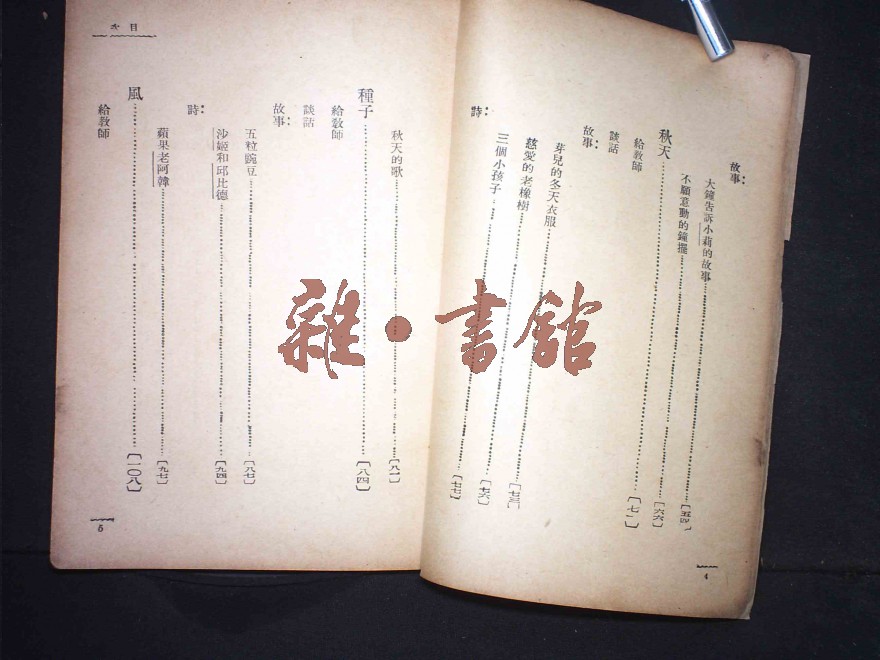 故事：
大鐘告訴小莉的故事……[五四]
不願意動的鐘擺……[六六]
秋天……[七一]
給教師
談話
故事：
芽兒的冬天衣服……[七三]
慈愛的老橡樹……[七六]
三個小孩子……[七七]
詩：
4
目次
秋天的歌……[八一]
種子……[八四]
給教師
談話
故事：
五粒豌豆……[八七]
沙姬和邱比德……[九四]
詩：
蘋果老阿韓……[九七]
風……[一〇八]
給教師
5
雜·書館